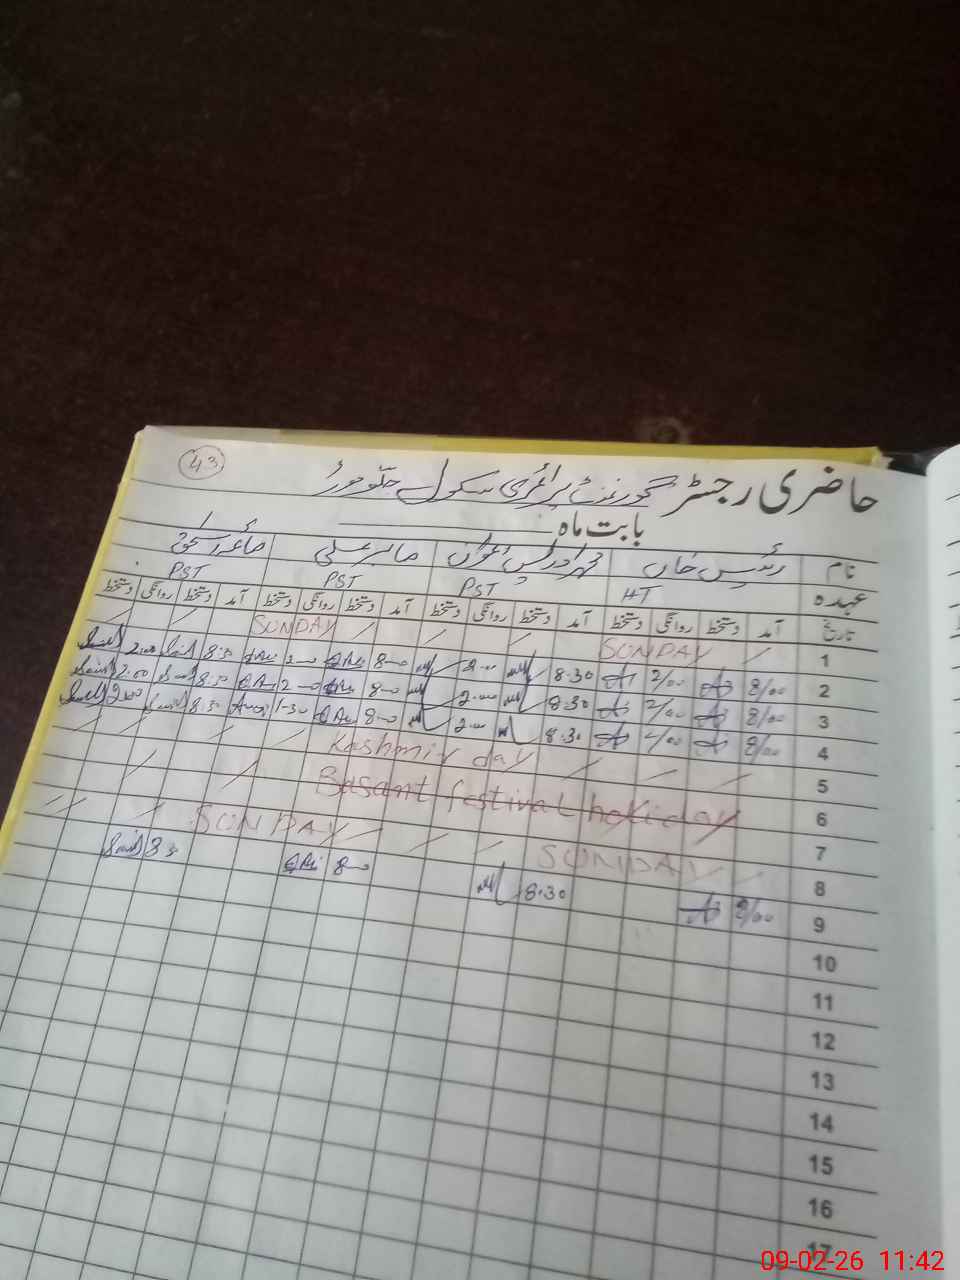 43
حاضری رجسٹر گورنمنٹ پرائمری سکول
بابت ماہ
نام رئیس خان محمد ادریس اعوان صابر علی صائمہ اسحٰق
عہدہ HT PST PST PST
تاریخ آمد دستخط روانگی دستخط آمد دستخط روانگی دستخط آمد دستخط روانگی دستخط آمد دستخط روانگی دستخط
1 SUNDAY SUNDAY
2 8/00 2/00 8:30 2:00 8-00 2-00 8:30 2:00
3 8/00 2/00 8:30 2:00 8-00 2-00 8:30 2:00
4 8/00 2/00 8:30 2:00 8-00 1-30 8:30 2:00
5 Kashmir day
6 Basant festival holiday
7
8 SUNDAY SUNDAY
9 8/00 8:30 8-00
10
11
12
13
14
15
16
17
09-02-26 11:42